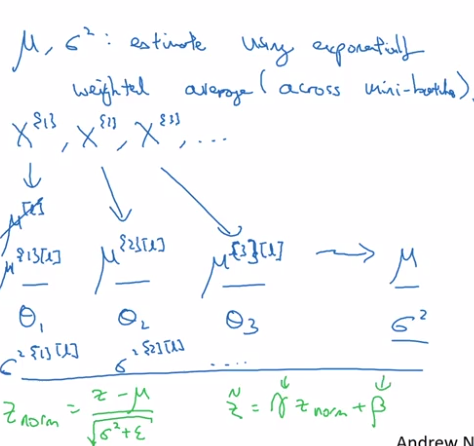 μ, σ² : estimate using exponentially
weighted average (across mini-batches).
X^{1}, X^{2}, X^{3}, ...
μ^[l]
μ^{1}[l] μ^{2}[l] μ^{3}[l] → μ
θ₁ θ₂ θ₃ σ²
σ²^{1}[l] σ²^{2}[l] ....
z_norm = (z - μ)/√(σ²+ε) z̃ = γ z_norm + β
Andrew N